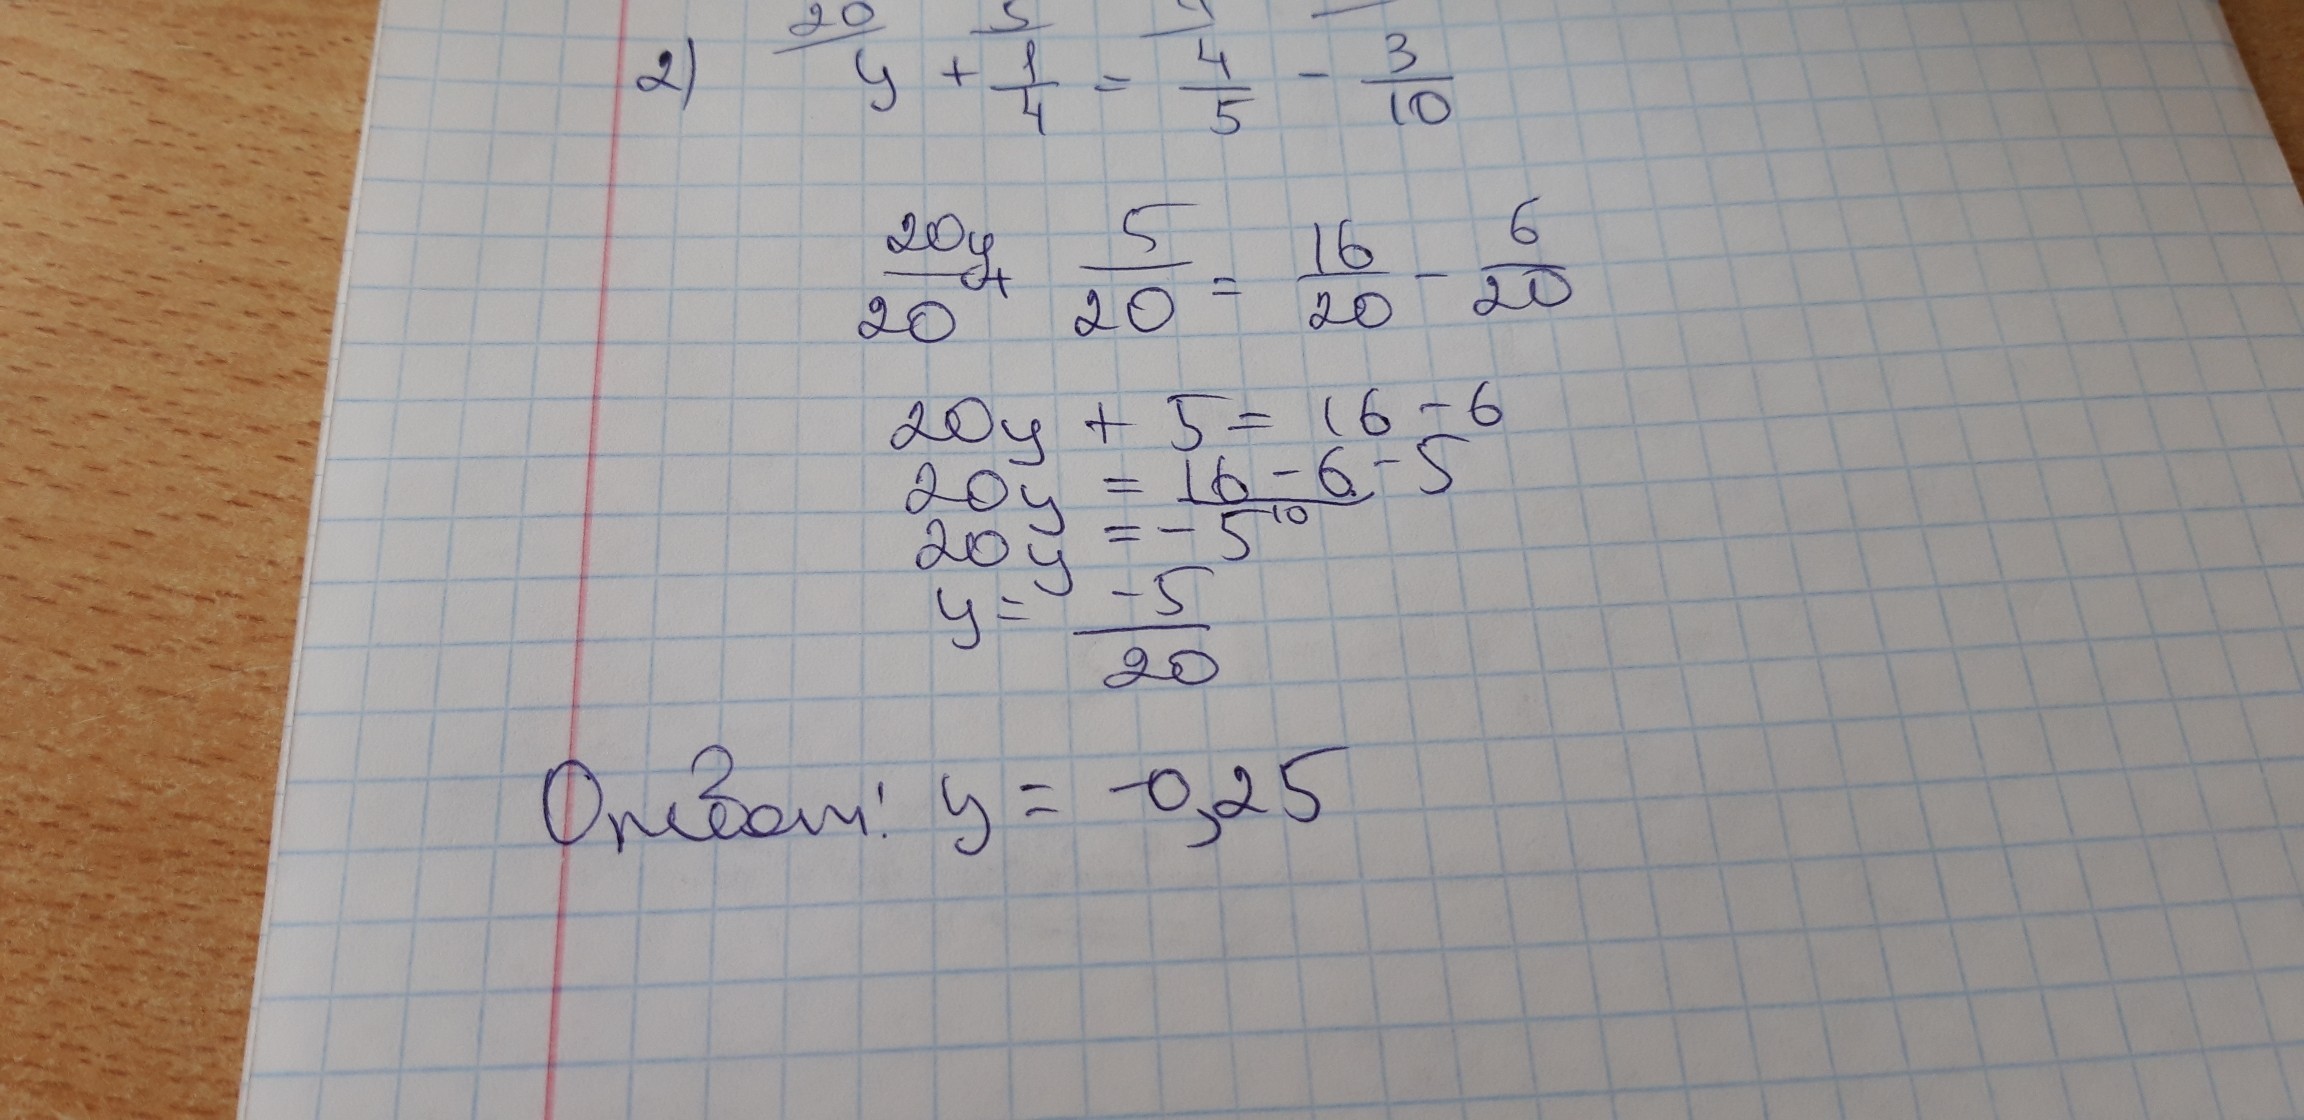 20 5 4
2) y + 1/4 = 4/5 - 3/10
20y/20 + 5/20 = 16/20 - 6/20
20y + 5 = 16 - 6
20y = 16 - 6 - 5
10
20y = - 5
y = -5/20
Ответ: y = -0,25